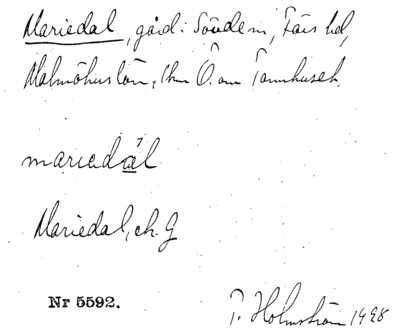 Mariedal, gård i Södem, Färs hd,
Malmöhus län, 1 km Ö. om Tannhuset.
marieda̲´l
Mariedal, ch. G
Nr 5592.
P. Holmström 1928